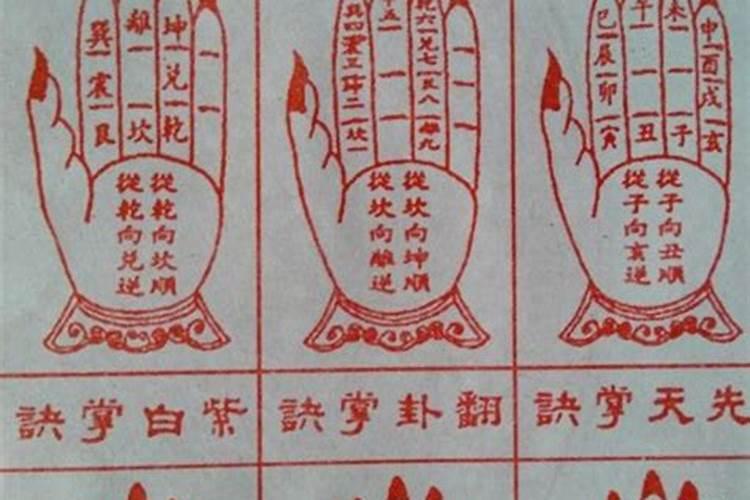 申酉戌亥
未子
午丑
巳辰卯寅
從子向丑順
從子向亥逆
先天掌訣
乾六兌七艮八離九
五
巽四震三坤二坎一
從坎向坤順
從坎向離逆
翻卦掌訣
坤兌乾
離坎
巽震艮
從乾向坎順
從乾向兌逆
紫白掌訣